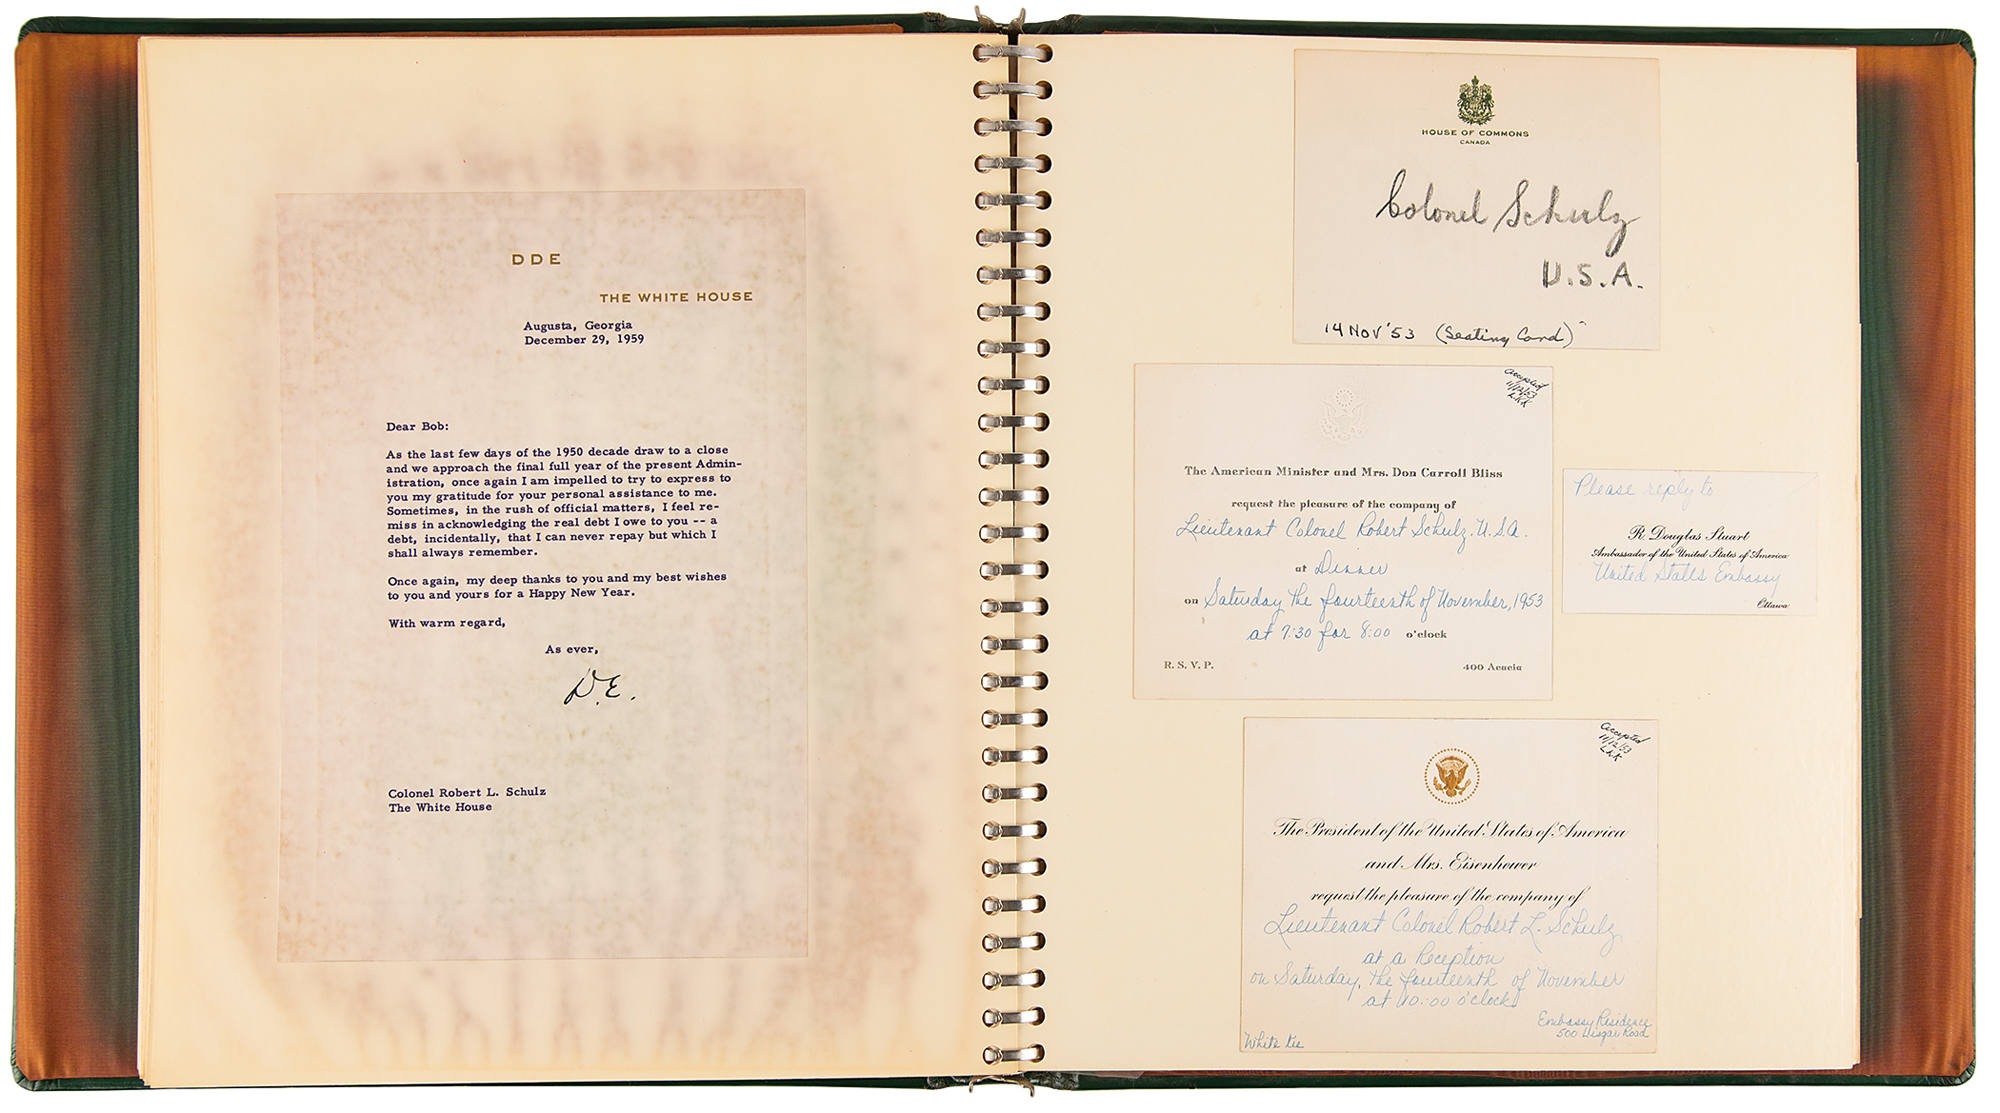 DDE
THE WHITE HOUSE
Augusta, Georgia
December 29, 1959
Dear Bob:
As the last few days of the 1950 decade draw to a close
and we approach the final full year of the present Admin-
istration, once again I am impelled to try to express to
you my gratitude for your personal assistance to me.
Sometimes, in the rush of official matters, I feel re-
miss in acknowledging the real debt I owe to you -- a
debt, incidentally, that I can never repay but which I
shall always remember.
Once again, my deep thanks to you and my best wishes
to you and yours for a Happy New Year.
With warm regard,
As ever,
D.E.
Colonel Robert L. Schulz
The White House
HOUSE OF COMMONS
CANADA
Colonel Schulz
U.S.A.
14 Nov '53 (Seating Card)
accepted
11/12/53
The American Minister and Mrs. Don Carroll Bliss
request the pleasure of the company of
Lieutenant Colonel Robert Schulz. U.S.A.
at Dinner
on Saturday the fourteenth of November, 1953
at 7:30 for 8:00 o'clock
R. S. V. P.
400 Acacia
Please reply to
R. Douglas Stuart
Ambassador of the United States of America
United States Embassy
Ottawa
accepted
11/12/53
The President of the United States of America
and Mrs. Eisenhower
request the pleasure of the company of
Lieutenant Colonel Robert L. Schulz
at a Reception
on Saturday, the fourteenth of November
at 10:00 o'clock
Embassy Residence
500 Lisgar Road
White tie